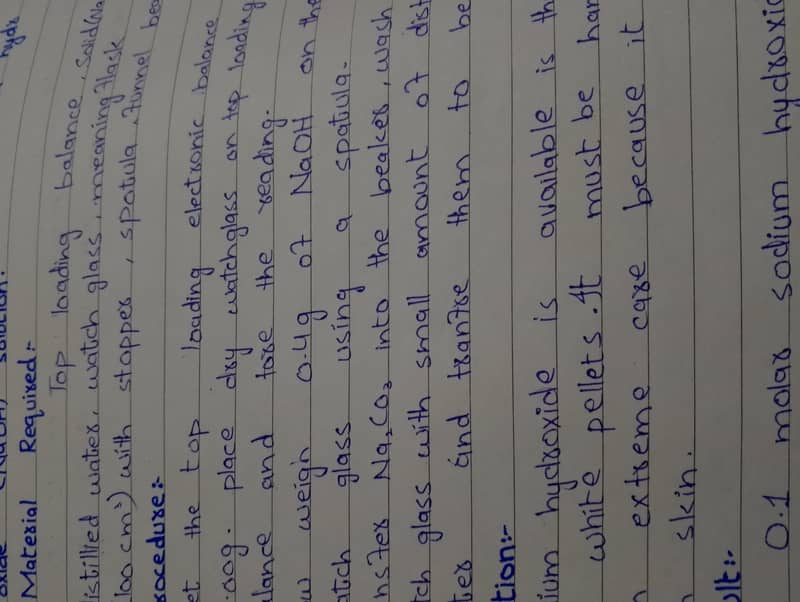 hydr
oxide (NaOH) solution.
Material Required:-
Top loading balance, Solid(Na
istillted water, watch glass, meaning flask
100 cm³) with stopper, spatula, funnel bea
rocedure:-
et the top loading electronic balance
.00g. place dry watchglass on top loading
lance and tare the reading.
w weigh 0.4g of NaOH on the
atch glass using a spatula.
nsfer Na₂CO₃ into the beaker, wash
tch glass with small amount of dist
ter and tranfse them to be
tion:-
ium hydroxide is available is th
white pellets. It must be han
n extreme care because it
n skin.
ult:-
0.1 molar sodium hydroxid